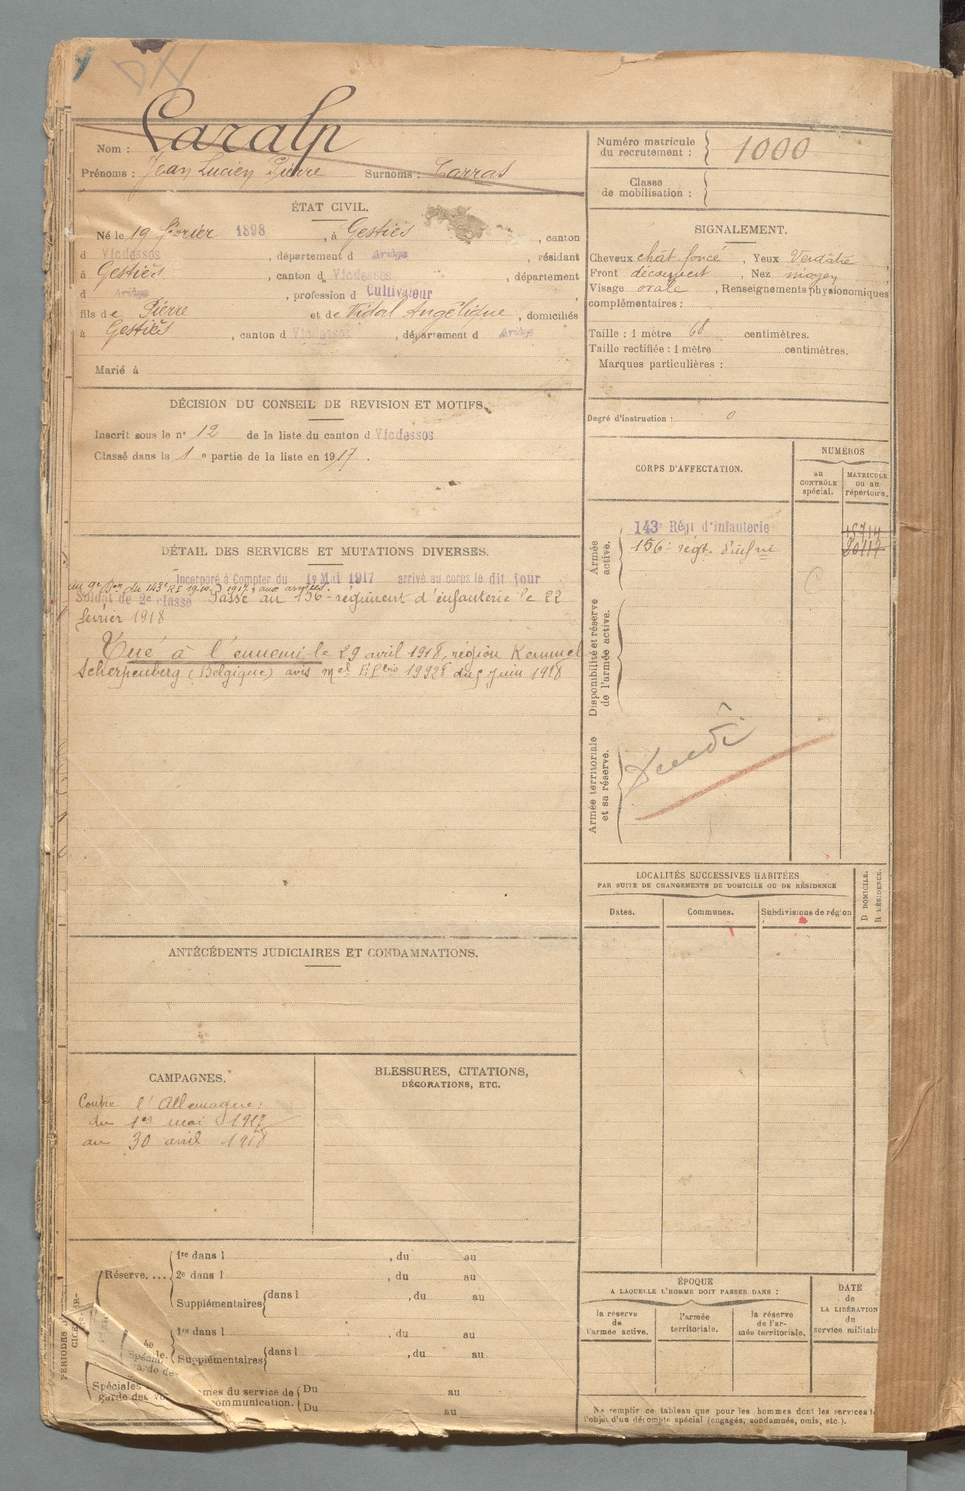 Nom : Caralp
Prénoms : Jean Lucien Pierre Surnoms : Carras
ÉTAT CIVIL.
Né le 19 février 1898, à Gestiès, canton
d Vicdessos, département d Ariège, résidant
à Gestiès, canton d Vicdessos, département
d Ariège, profession d Cultivateur
fils de Pierre et de Vidal Angélique, domiciliés
à Gestiès, canton d Vicdessos, département d Ariège
Marié à
DÉCISION DU CONSEIL DE REVISION ET MOTIFS.
Inscrit sous le n° 12 de la liste du canton d Vicdessos
Classé dans la 1e partie de la liste en 1917.
DÉTAIL DES SERVICES ET MUTATIONS DIVERSES.
Incorporé à Compter du 1er Mai 1917 arrivé au corps le dit jour
au 9e Bon du 143e RI 1917, aux armées.
Soldat de 2e classe Passé au 156e régiment d'infanterie le 22
février 1918
Tué à l'ennemi le 29 avril 1918, région Kemmel
Scherpenberg (Belgique) avis mel du 5 juin 1918
ANTÉCÉDENTS JUDICIAIRES ET CONDAMNATIONS.
CAMPAGNES.
Contre l'Allemagne:
du 1er mai 1917
au 30 avril 1918
BLESSURES, CITATIONS,
DÉCORATIONS, ETC.
Réserve....
1re dans l , du au
2e dans l , du au
Supplémentaires dans l , du au
1re dans l , du au
Supplémentaires dans l , du au
Spéciales
garde des
mes du service de
ommunication.
Du au
Du au
Numéro matricule
du recrutement : 1000
Classe
de mobilisation :
SIGNALEMENT.
Cheveux chât foncé, Yeux Verdâtre
Front découvert, Nez moyen
Visage ovale, Renseignements physionomiques
complémentaires :
Taille : 1 mètre 68 centimètres.
Taille rectifiée : 1 mètre centimètres.
Marques particulières :
Degré d'instruction : 0
CORPS D'AFFECTATION.
NUMÉROS
au
CONTRÔLE
spécial.
MATRICULE
ou au
répertoire.
Armée
active.
143e Régt d'Infanterie
156e régt. d'infrie
Disponibilité et réserve
de l'armée active.
Armée territoriale
et sa réserve.
LOCALITÉS SUCCESSIVES HABITÉES
PAR SUITE DE CHANGEMENTS DE DOMICILE OU DE RÉSIDENCE
Dates.
Communes.
Subdivisions de région
D DOMICILE.
R RÉSIDENCE.
ÉPOQUE
A LAQUELLE L'HOMME DOIT PASSER DANS :
la réserve
de
l'armée active.
l'armée
territoriale.
la réserve
de l'ar-
mée territoriale.
DATE
de
LA LIBÉRATION
du
service militaire
Ne remplir ce tableau que pour les hommes dont les services
l'objet d'un décompte spécial (engagés, condamnés, omis, etc.).